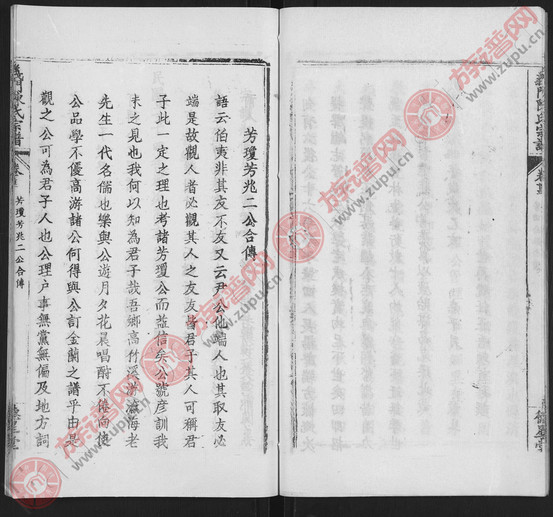 芳瓊芳兆二公合傳
語云伯夷非其友不友又云尹公他端人也其取友必
端是故觀人者必觀其人之友友皆君子其人可稱君
子此一定之理也考諸芳瓊公而益信矣公號彦訓我
未之見也我何以知為君子哉吾鄉高竹溪游瀛海老
先生一代名儒也樂與公遊月夕花晨唱酬不倦向使
公品學不優高游諸公何得與公訂金蘭之譜乎由是
觀之公可為君子人也公理户事無黨無偏及地方詞
義門陳氏宗譜
卷
芳瓊芳兆二公合傳
義門陳氏宗譜
卷
族譜网
www.zupu.cn
族譜网
www.zupu.cn
族譜网
www.zupu.cn